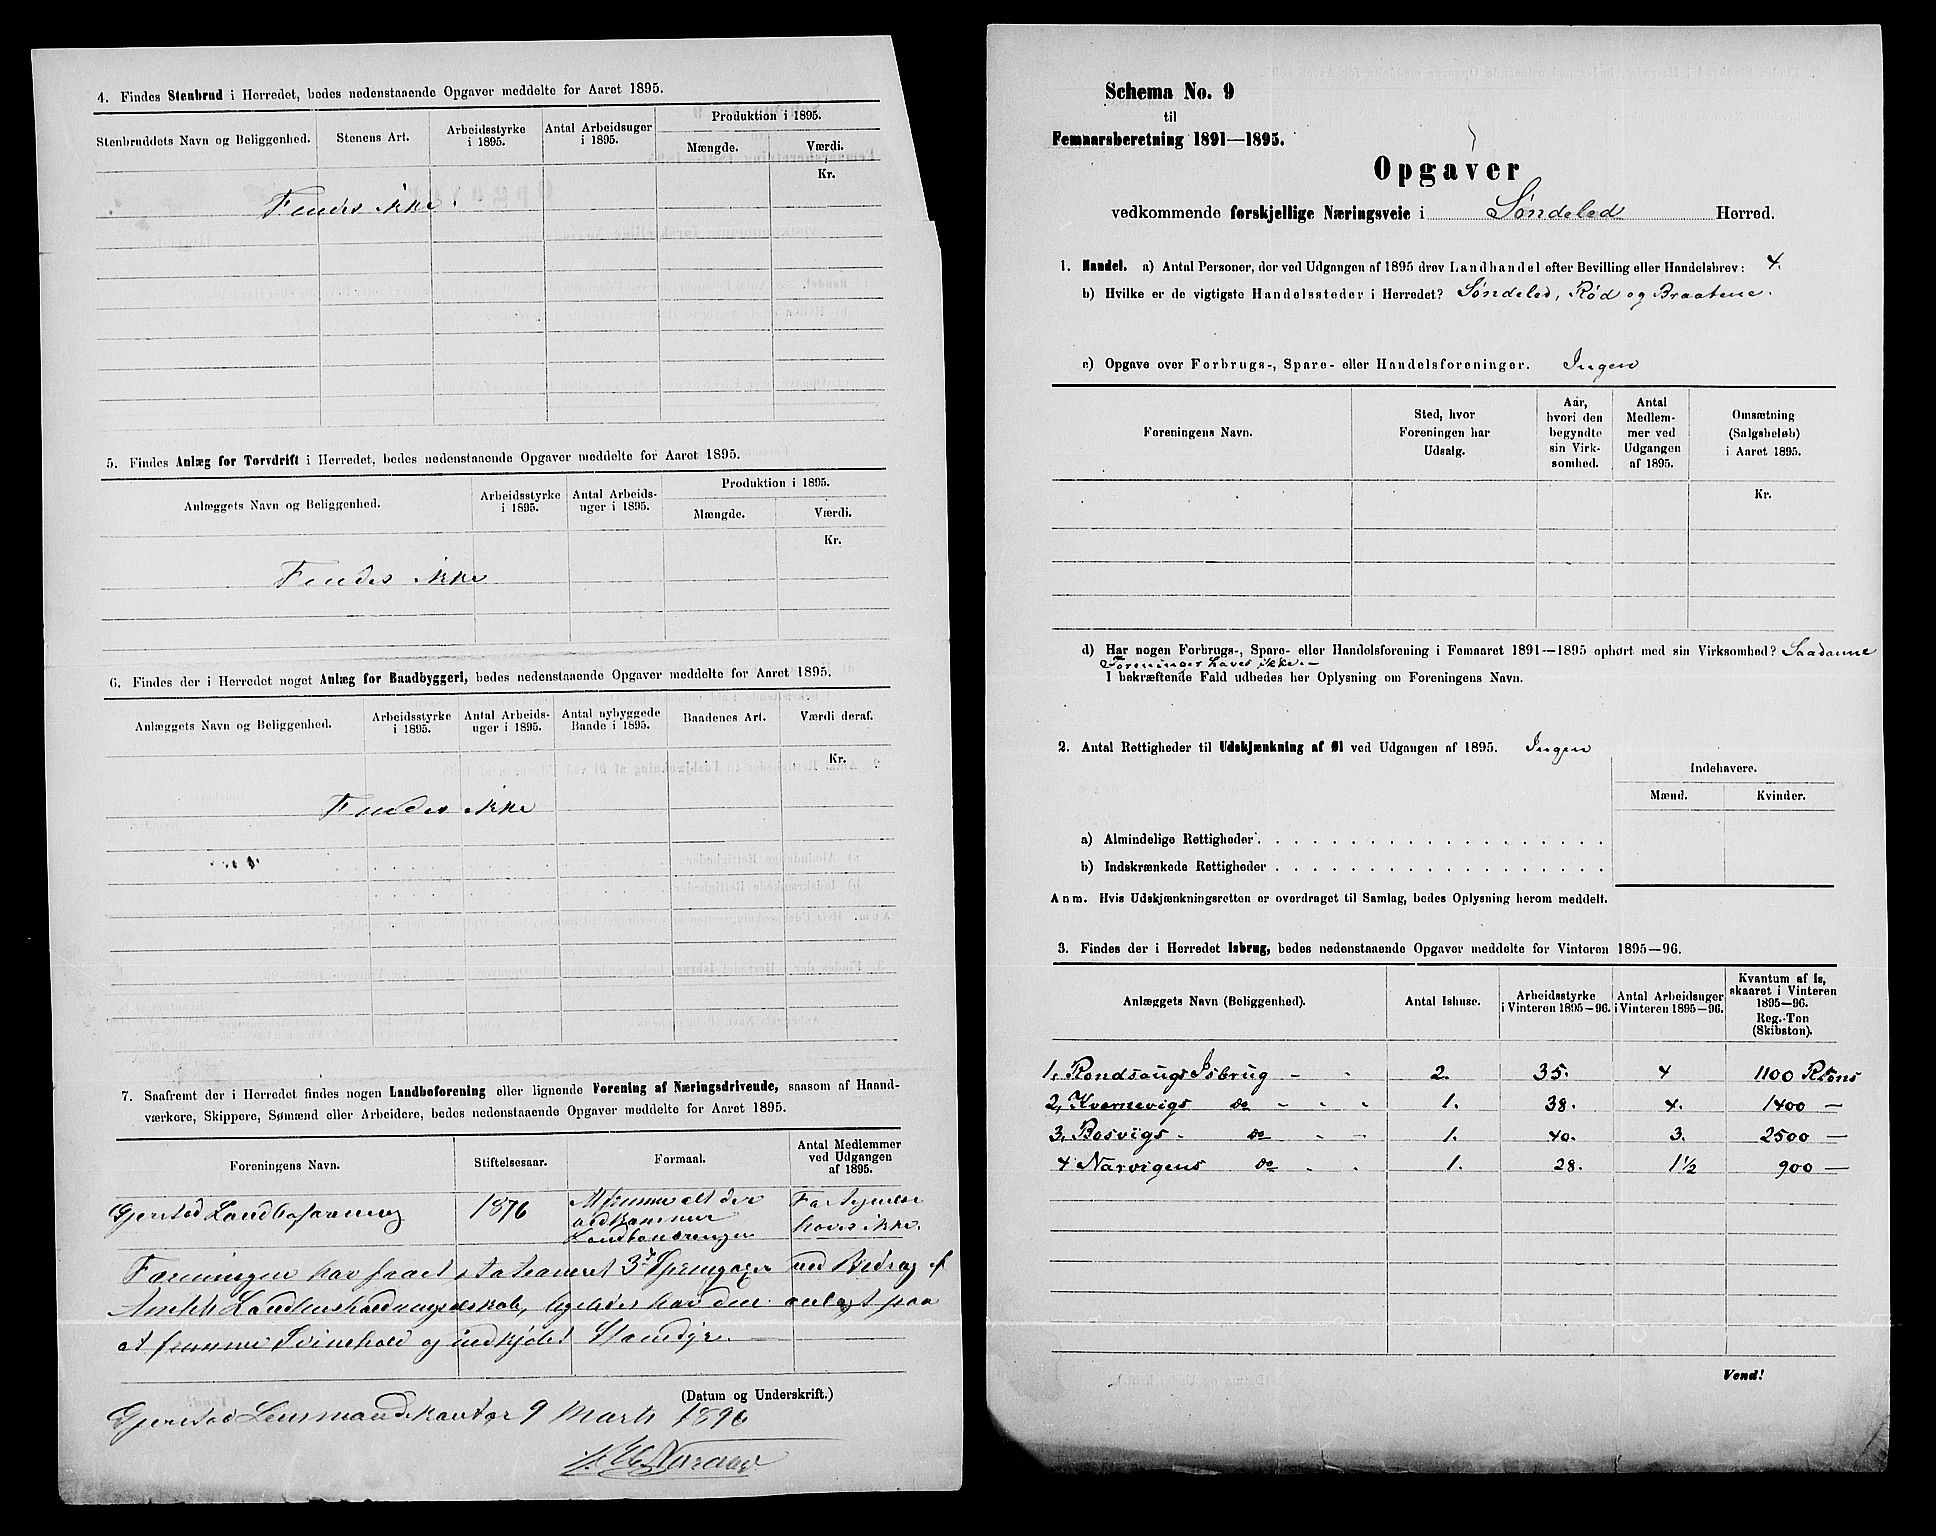 4. Findes Stenbrud i Herredet, bedes nedenstaaende Opgaver meddelte for Aaret 1895.
Stenbruddets Navn og Beliggenhed. Stenens Art. Arbeidsstyrke i 1895. Antal Arbeidsuger i 1895. Produktion i 1895.
Mængde. Værdi.
Kr.
Findes ikke.
5. Findes Anlæg for Torvdrift i Herredet, bedes nedenstaaende Opgaver meddelte for Aaret 1895.
Anlæggets Navn og Beliggenhed. Arbeidsstyrke i 1895. Antal Arbeids-uger i 1895. Produktion i 1895.
Mængde. Værdi.
Kr.
Findes ikke
6. Findes der i Herredet noget Anlæg for Baadbyggeri, bedes nedenstaaende Opgaver meddelte for Aaret 1895.
Anlæggets Navn og Beliggenhed. Arbeidsstyrke i 1895. Antal Arbeids-uger i 1895. Antal nybyggede Baade i 1895. Baadenes Art. Værdi deraf.
Kr.
Findes ikke
7. Saafremt der i Herredet findes nogen Landboforening eller lignende Forening af Næringsdrivende, saasom af Haand-
værkere, Skippere, Sømænd eller Arbeidere, bedes nedenstaaende Opgaver meddelte for Aaret 1895.
Foreningens Navn. Stiftelsesaar. Formaal. Antal Medlemmer ved Udgangen af 1895.
Gjerstad Landboforening 1876 At fremme alt der Fortegnelse
vedkommer haves ikke.
Landbonæringen
Foreningen har faaet stationeret 3 ved Bidrag af
Amtets Landhusholdningsselskab, ligeledes har den anlagt paa
at fremme Svinehold og indkjøbt Stamdyr.
(Datum og Underskrift.)
Gjerstad Lensmandskontor 9 Marts 1896
Schema No. 9
til
Femaarsberetning 1891—1895.
Opgaver
vedkommende forskjellige Næringsveie i Søndeled Herred.
1. Handel. a) Antal Personer, der ved Udgangen af 1895 drev Landhandel efter Bevilling eller Handelsbrev: 4.
b) Hvilke er de vigtigste Handelssteder i Herredet? Søndeled, Rød og Braatene.
c) Opgave over Forbrugs-, Spare- eller Handelsforeninger. Ingen
Foreningens Navn. Sted, hvor Foreningen har Udsalg. Aar, hvori den begyndte sin Virk-somhed. Antal Medlem-mer ved Udgangen af 1895. Omsætning (Salgsbeløb) i Aaret 1895.
Kr.
d) Har nogen Forbrugs-, Spare- eller Handelsforening i Femaaret 1891—1895 ophørt med sin Virksomhed? Saadanne
Foreninger haves ikke.—
I bekræftende Fald udbedes her Oplysning om Foreningens Navn.
2. Antal Rettigheder til Udskjænkning af Øl ved Udgangen af 1895. Ingen
Indehavere.
Mænd. Kvinder.
a) Almindelige Rettigheder
b) Indskrænkede Rettigheder
Anm. Hvis Udskjænkningsretten er overdraget til Samlag, bedes Oplysning herom meddelt.
3. Findes der i Herredet Isbrug, bedes nedenstaaende Opgaver meddelte for Vinteren 1895—96.
Anlæggets Navn (Beliggenhed). Antal Ishuse. Arbeidsstyrke i Vinteren 1895—96. Antal Arbeidsuger i Vinteren 1895—96. Kvantum af Is, skaaret i Vinteren 1895—96. Reg.-Ton (Skibston).
1, Rondsaugs Isbrug - - 2. 35. 4 1100 Rtons
2, Kvernevigs do - - - 1. 38. 4. 1400 —
3, Bosvigs. do - - 1. 40. 3. 2500 —
4 Narvigens do - - 1. 28. 1½ 900 —
Vend!